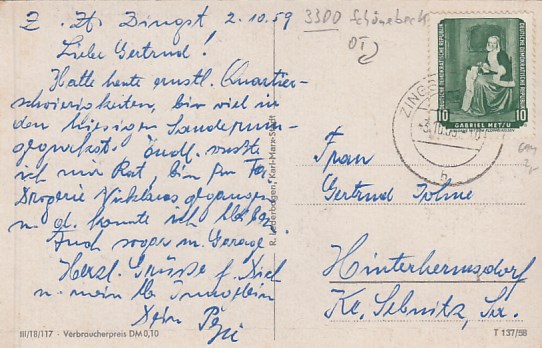 Z. Zt. Zingst 2.10.59
3300 Schönebeck
OT
Liebe Gertrud!
Hatte heute ernstl. Quartier-
schwierigkeiten, bin viel in
der hiesigen Gegend herum-
gegurkt. Endl. wusste
ich mir Rat, bin zur Fa.
Drogerie Nicklaus gegangen
u. d. konnte ich bleiben.
Auch sogar m. Garage.
Herzl. Grüsse f. Dich
u. mein lb.
Dein
DEUTSCHE DEMOKRATISCHE REPUBLIK
DEUTSCHE DEMOKRATISCHE REPUBLIK
10 10
GABRIEL METZU
ZINGST
Frau
Gertrud
Hinterhermsdorf
Kr. Sebnitz, Sa.
R. Lederbogen, Karl-Marx-Stadt
III/18/117 · Verbraucherpreis DM 0,10
T 137/58